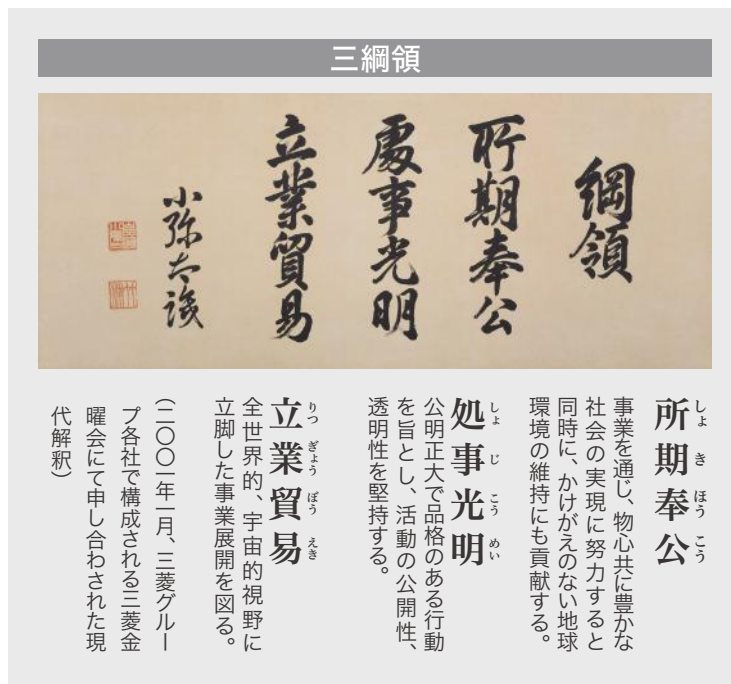 三綱領
綱領
所期奉公
處事光明
立業貿易
小彌太議
所期奉公
しょきほうこう
事業を通じ、物心共に豊かな
社会の実現に努力すると
同時に、かけがえのない地球
環境の維持にも貢献する。
処事光明
しょじこうめい
公明正大で品格のある行動
を旨とし、活動の公開性、
透明性を堅持する。
立業貿易
りつぎょうぼうえき
全世界的、宇宙的視野に
立脚した事業展開を図る。
（二〇〇一年一月、三菱グルー
プ各社で構成される三菱金
曜会にて申し合わされた現
代解釈）